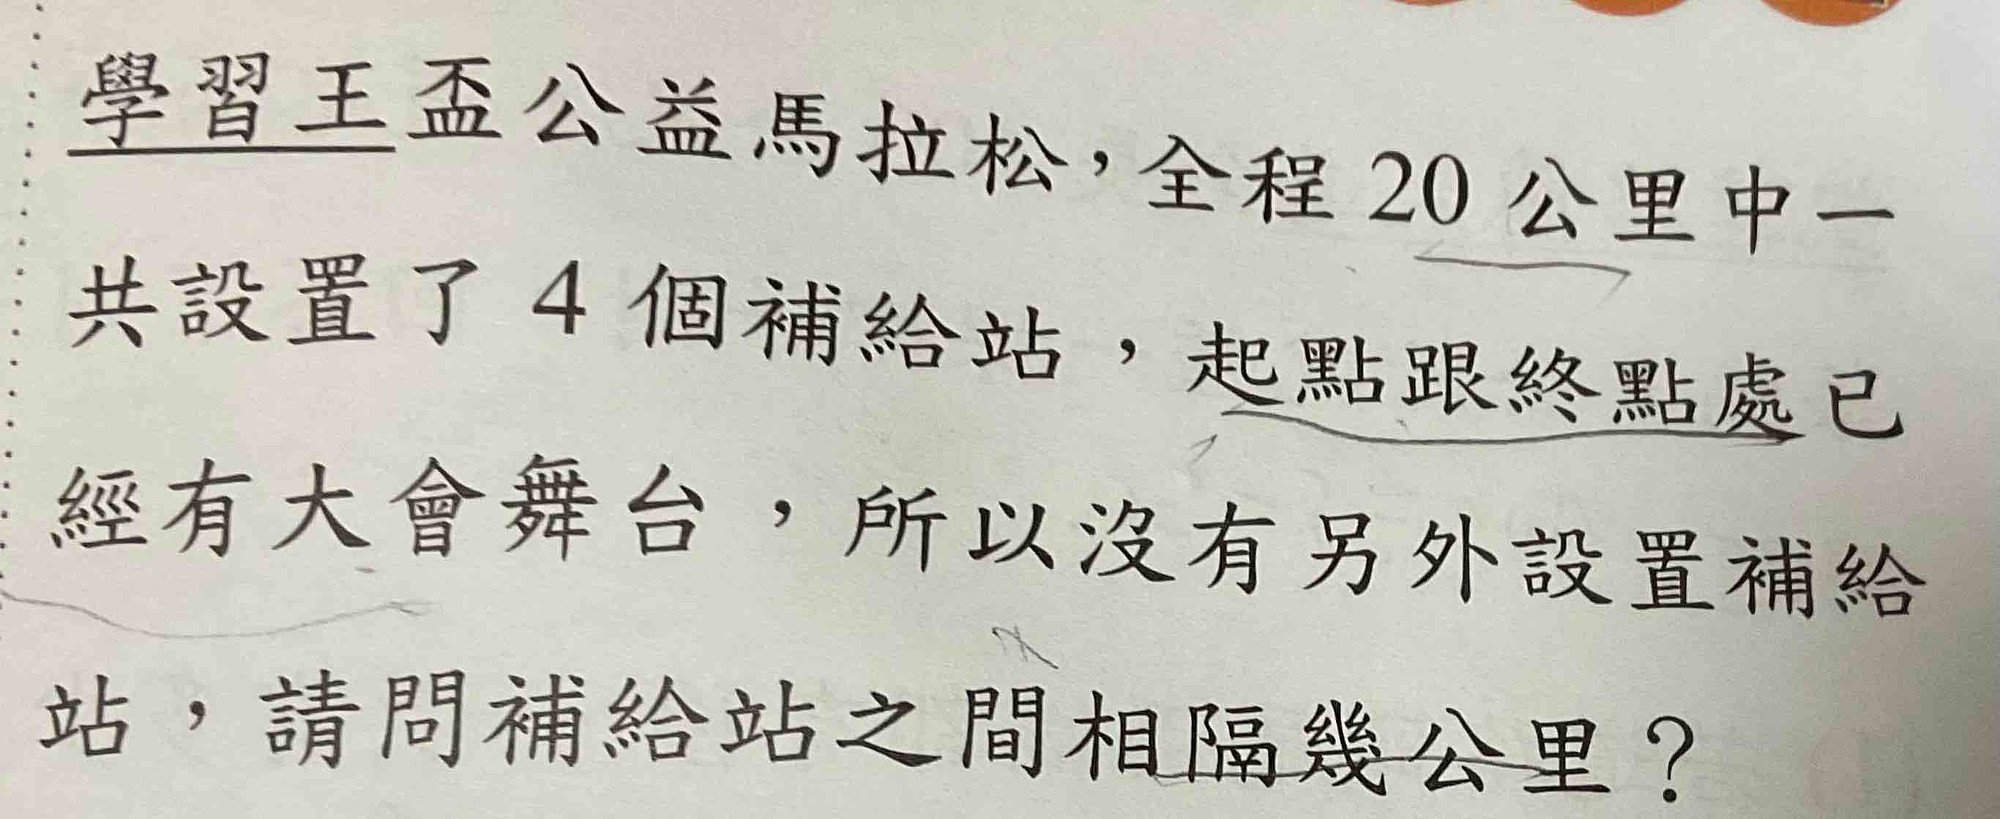 學習王盃公益馬拉松，全程 20 公里中一
共設置了 4 個補給站，起點跟終點處已
經有大會舞台，所以沒有另外設置補給
站，請問補給站之間相隔幾公里？